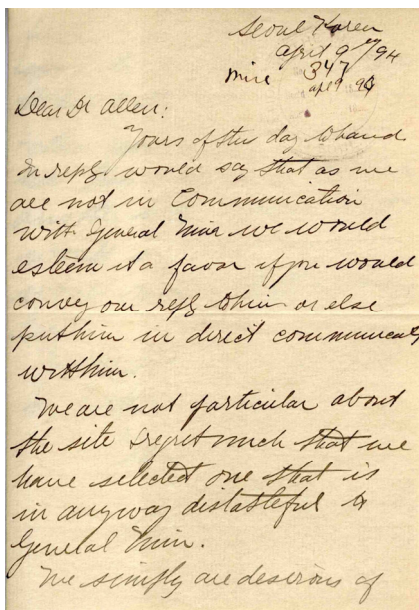 Seoul Korea
April 9th/94
347
Apl 9 94
Dear Dr Allen:
Yours of the day to hand
In reply would say that as we
are not in communication
with General Min we would
esteem it a favor if you would
convey our reply to him or else
put him in direct communicatn
with him.
We are not particular about
the site I regret much that we
have selected one that is
in anyway distasteful to
General Min.
We simply are desirous of